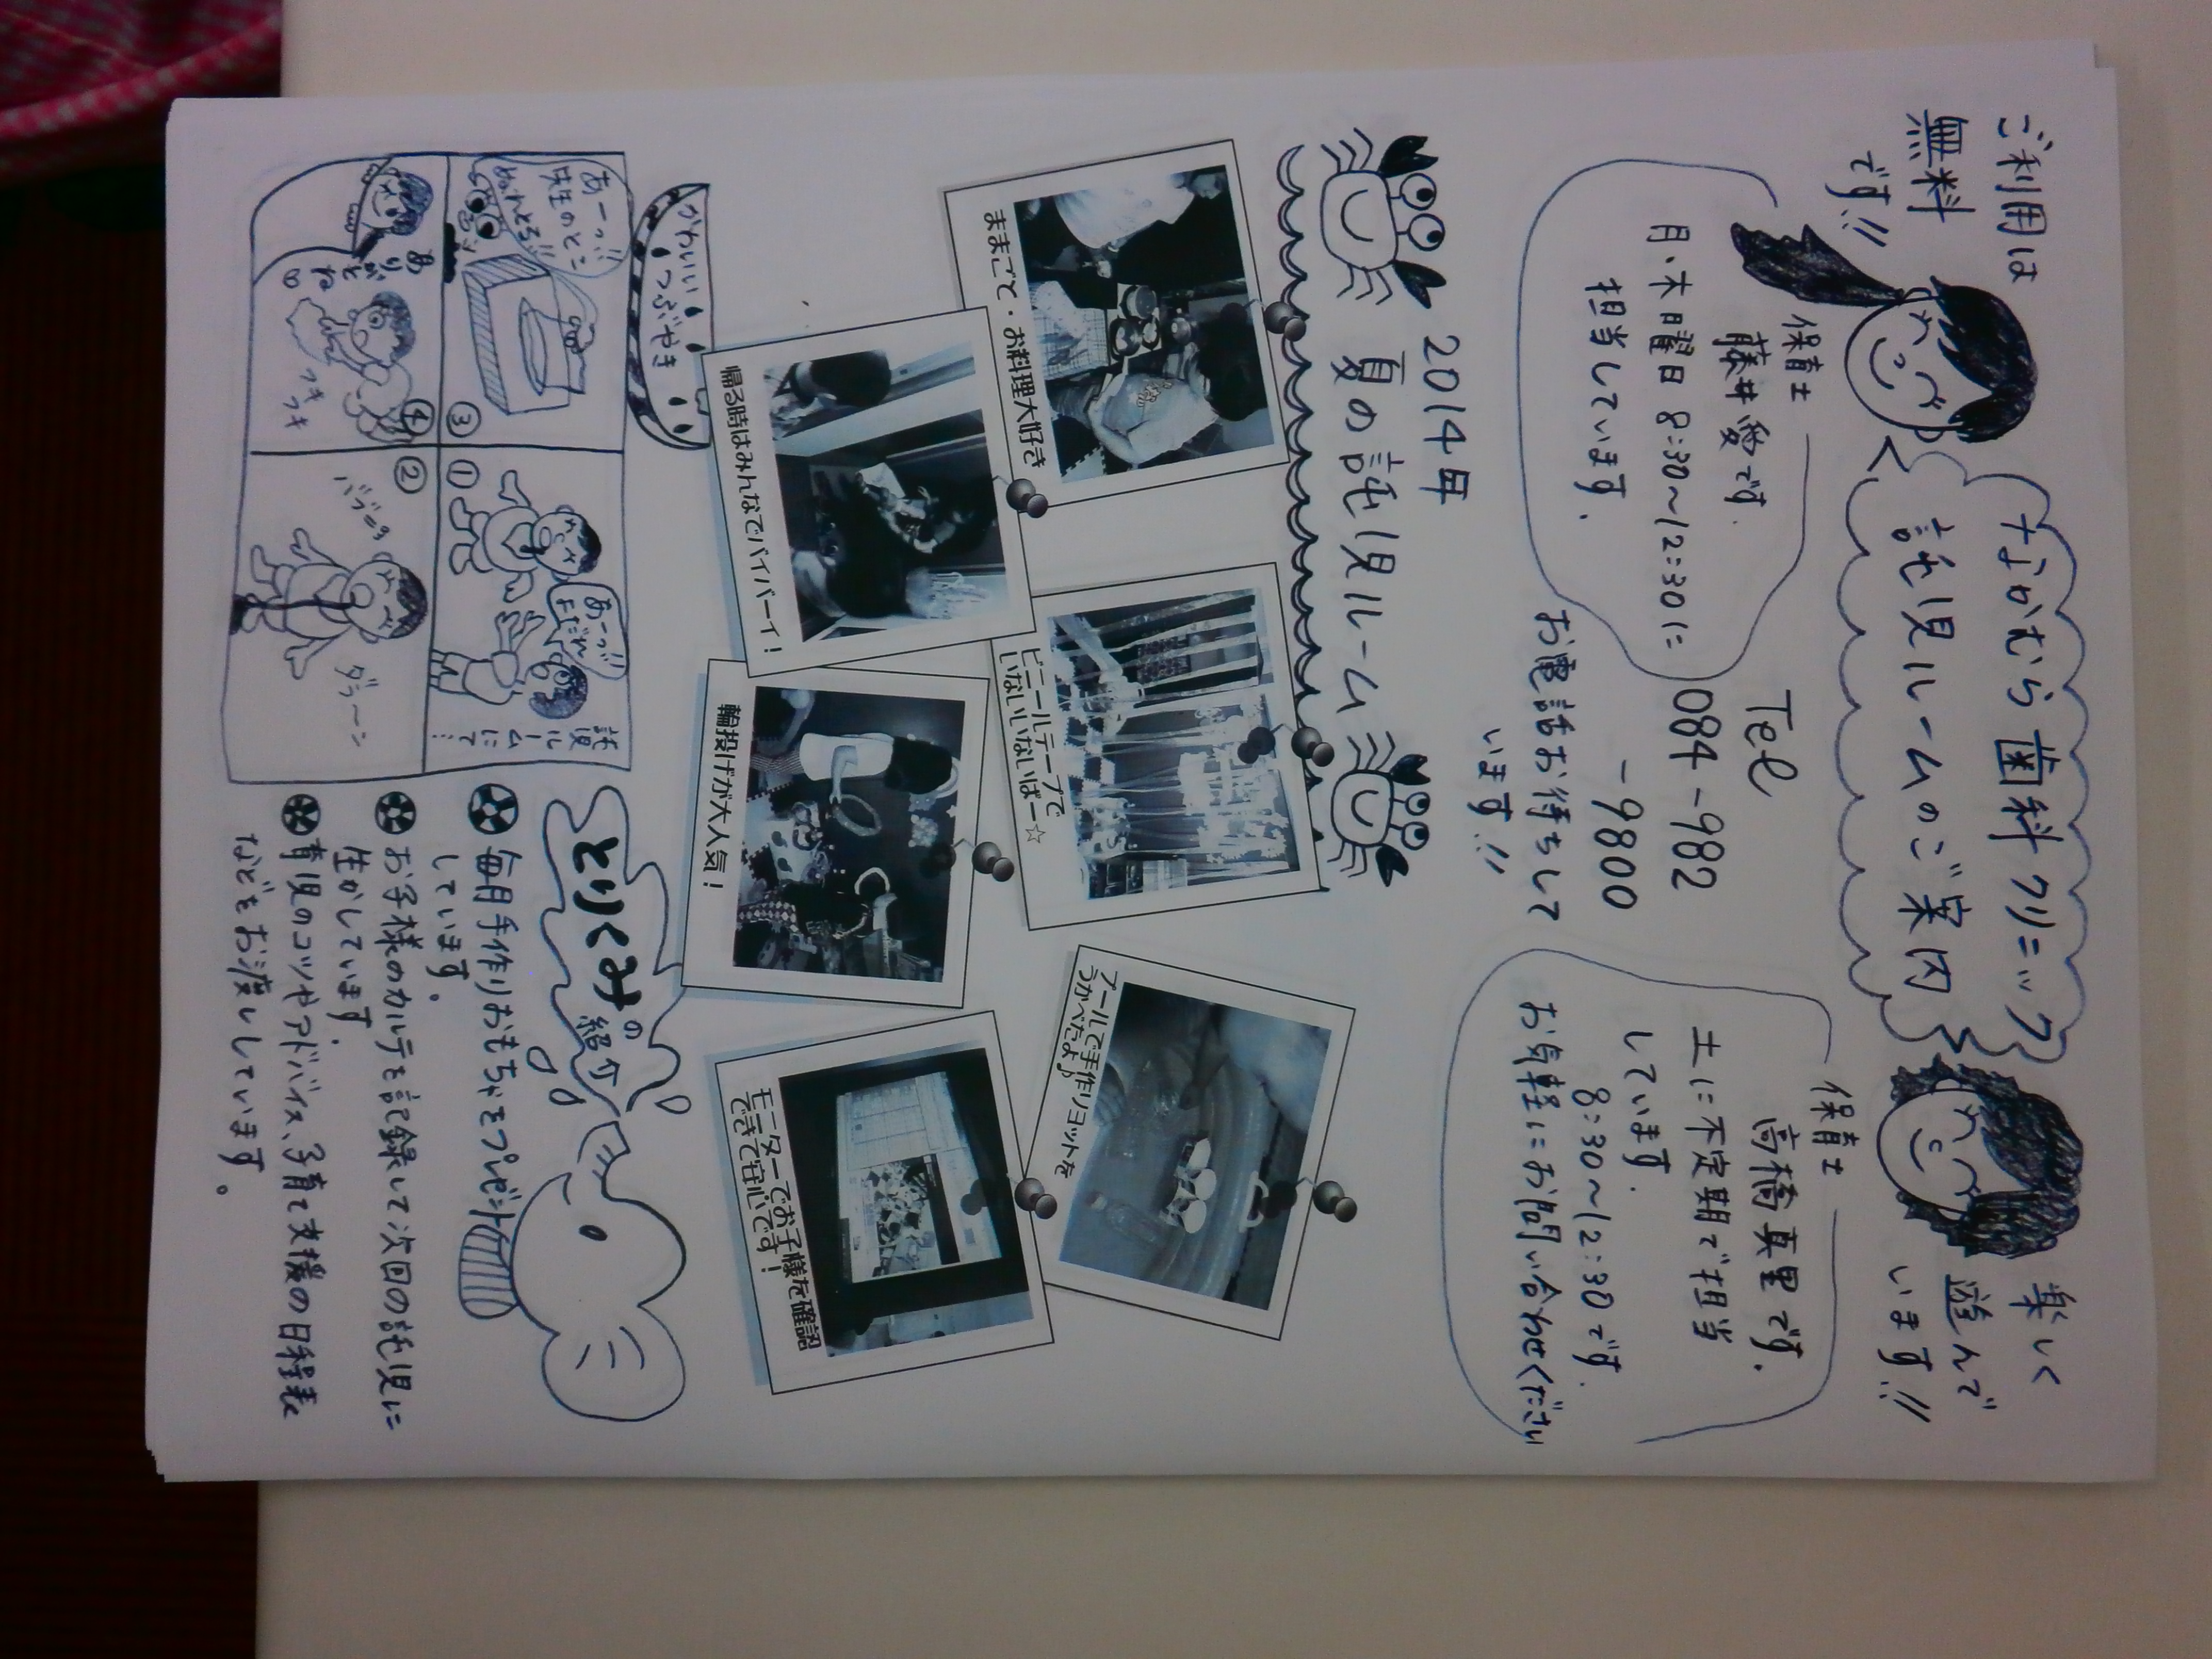 なかむら歯科クリニック
託児ルームのご案内
ご利用は
無料
です!!
楽しく
遊んで
います!!
保育士
藤井愛です.
月、木曜日 8:30～12:30に
担当しています.
Tel
084-982
-9800
お電話お待ちして
います!!
保育士
高橋真里です.
土に不定期で担当
しています.
8:30～12:30です.
お気軽にお問い合わせください
2014年
夏の託児ルーム
ままごと・お料理大好き
ビニールテープで
いないいないばー☆
プールで手作りヨットを
うかべたよ♪
帰る時はみんなでバイバーイ!
輪投げが大人気!
モニターでお子様を確認
できて安心です!
かわいい
つぶやき
託児
ルーム
にて…
①
あーっ!!
よだれ
②
バブーッ
ダラーン
③
あーっ!!
先生のとこ
ぬれとる!!
④
あり
がと
ね
フキ
フキ
とりくみの
紹介
毎月手作りおもちゃをプレゼント
しています.
お子様のカルテを記録して次回の託児に
生かしています.
育児のコツやアドバイス、子育て支援の日程表
などをお渡ししています。